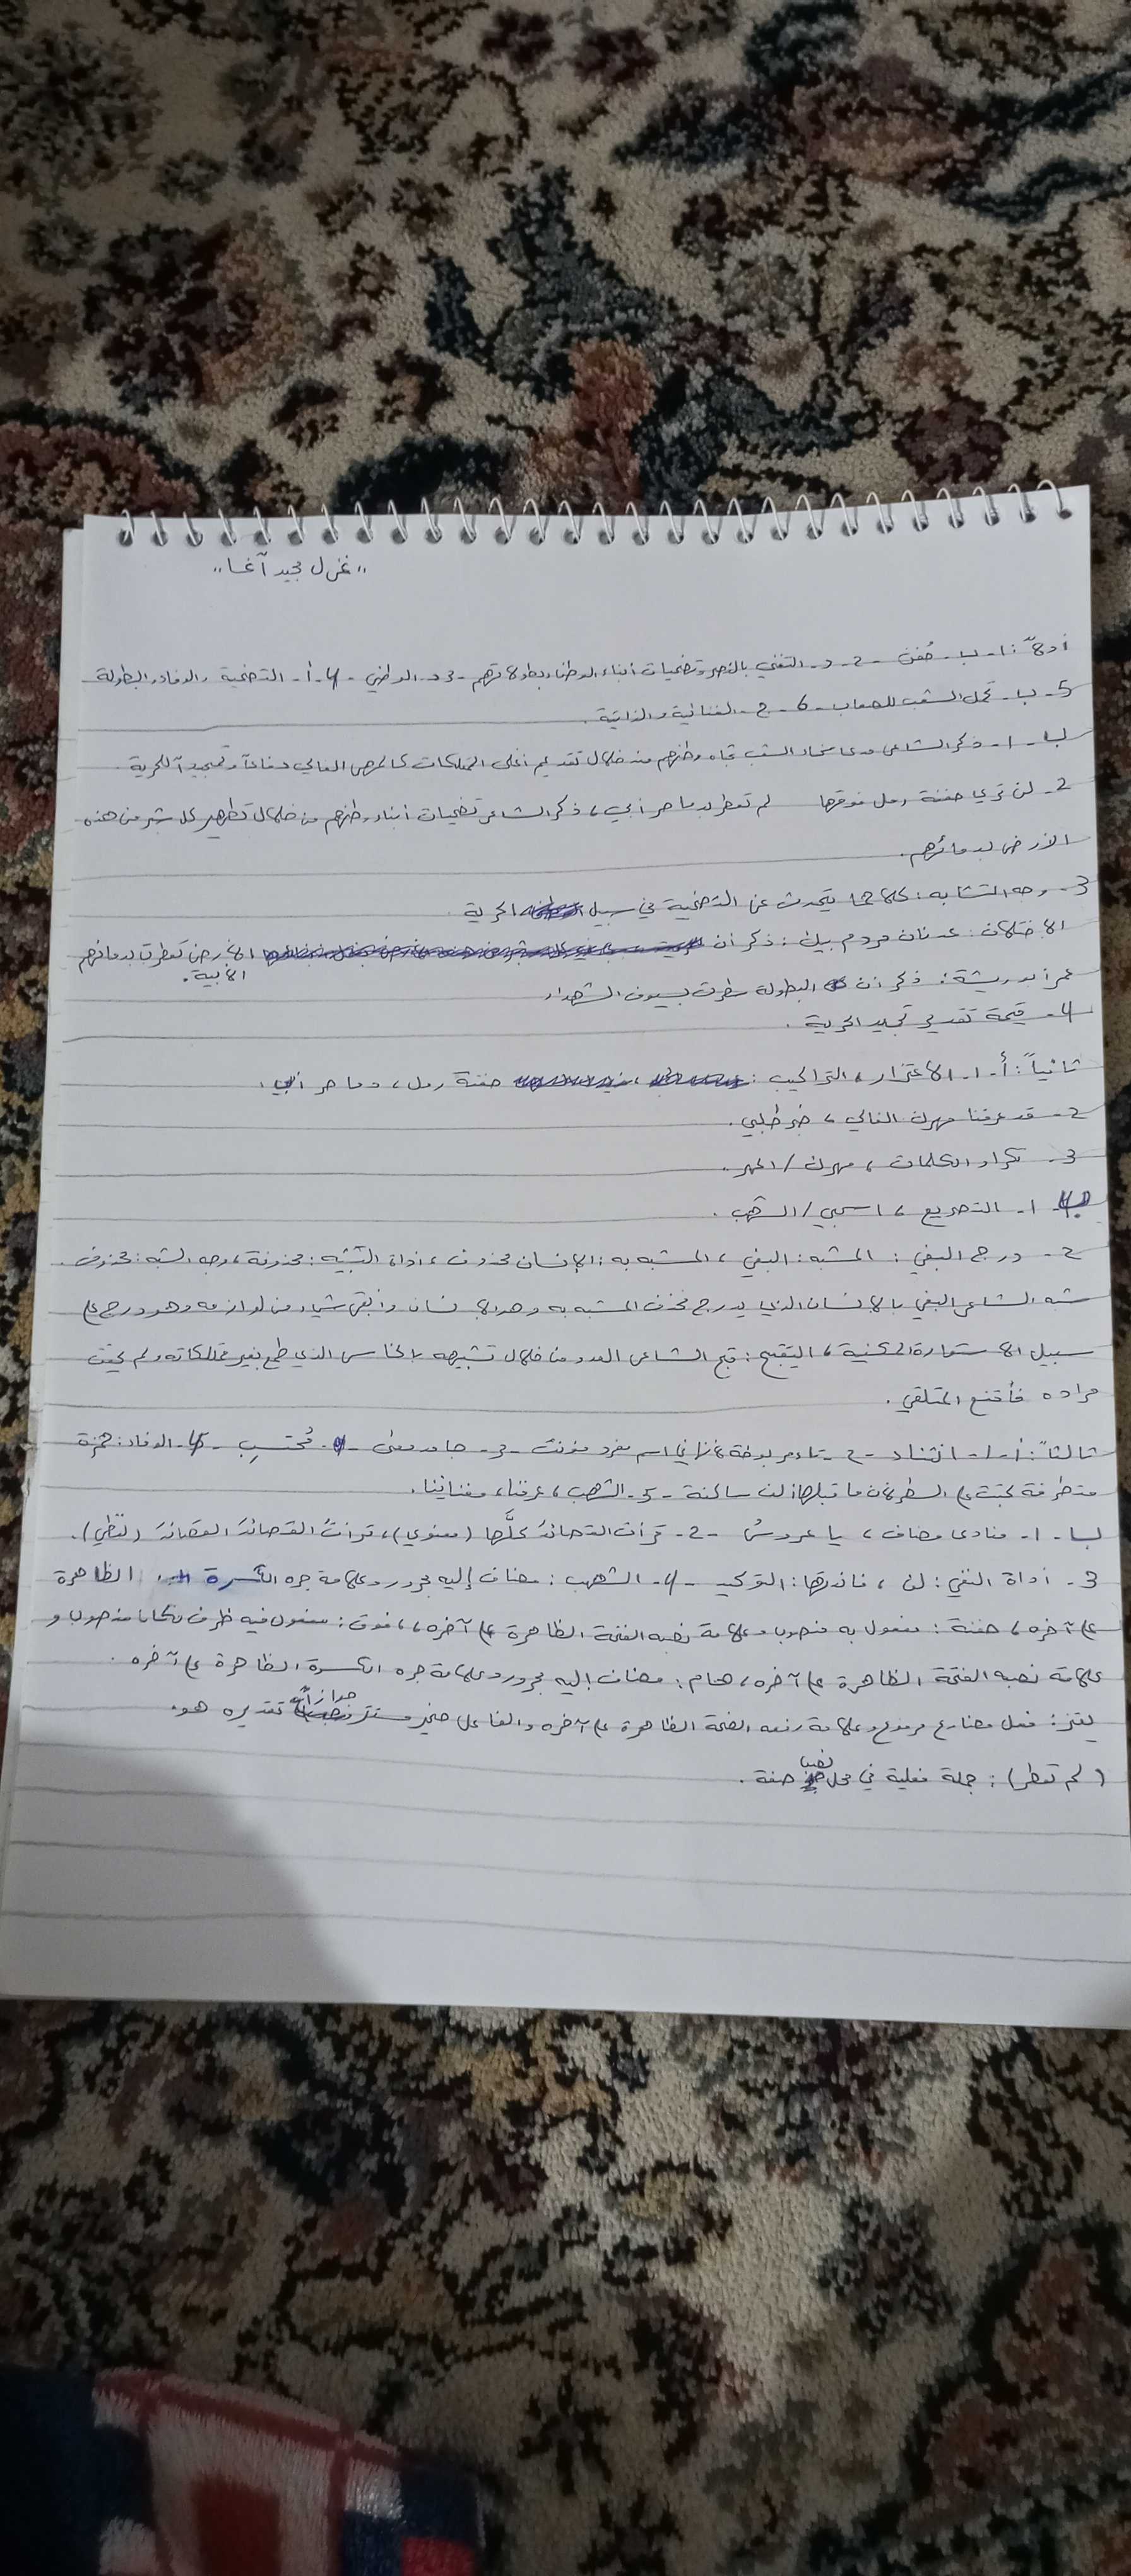 "غزل مجيد آغا"
أولاً: 1- ب- خفق - 2- د- التغني بالنصر وتضحيات أبناء الوطن وبطولاتهم - 3- د- الوطني - 4- أ- التضحية والوفاء والبطولة
5- ب- تحمل الشعب للصعاب - 6- ج- الغنائية والذاتية.
ب- 1- ذكر الشاعر مدى سخاء الشعب تجاه وطنهم من خلال تقديم أغلى الممتلكات كالمهر الغالي دفاعاً وتمجيداً للحرية.
2- لن تري حفنة رمل فوقها لم تعطر بدما حر أبي، ذكر الشاعر تضحيات أبناء وطنهم من خلال تطهير كل شبر من هذه
الأرض بدمائهم.
3- وجه التشابه: كلاهما يتحدث عن التضحية في سبيل الحرية.
الاختلاف: عدنان مردم بيك: ذكر أن الأرض تعطرت بدمائهم
الأبية.
عمر أبو ريشة: ذكر أن البطولة سطرت بسيوف الشهداء
4- قيمة تقدير تمجيد الحرية.
ثانياً: أ- 1- الاعتزاز، التراكيب: حفنة رمل، دما حر أبي.
2- قد عرفنا مهرك الغالي، خبر طلبي.
3- تكرار الكلمات، مهرك/المهر.
ب- 1- التصريع، اسحبي/الشهب.
2- درج البغي: المشبه: البغي، المشبه به: الإنسان محذوف، أداة التشبيه: محذوفة، وجه الشبه: محذوف.
شبه الشاعر البغي بالإنسان الذي يدرج فحذف المشبه به وهو الإنسان وأبقى شيء من لوازمه وهو درج على
سبيل الاستعارة المكنية، التقبيح: قبح الشاعر العدو من خلال تشبيهه بالخاسر الذي طمع بغير ممتلكاته ولم يحقق
مراده فأقنع المتلقي.
ثالثاً: أ- 1- انتشاء - 2- تاء مربوطة لأنها في اسم مفرد مؤنث - 3- جامد معنى - مُحتسِب - 4- الوفاء: همزة
متطرفة كتبت على السطر لأن ما قبلها ألف ساكنة - 5- الشهب، عرفنا، مغانينا.
ب- 1- منادى مضاف، يا عروسُ - 2- قرأت القصائدَ كلَّها (معنوي)، قرأتُ القصائدَ القصائدَ (لفظي).
3- أداة النفي: لن، فائدتها: التوكيد - 4- الشهب: مضاف إليه مجرور وعلامة جره الكسرة الظاهرة
على آخره، حفنة: مفعول به منصوب وعلامة نصبه الفتحة الظاهرة على آخره، فوق: مفعول فيه ظرف مكان منصوب و
علامة نصبه الفتحة الظاهرة على آخره، هام: مضاف إليه مجرور وعلامة جره الكسرة الظاهرة على آخره.
فعل مضارع مرفوع وعلامة رفعه الضمة الظاهرة على آخره والفاعل ضمير مستتر جوازاً تقديره هو.
(لم تعطر): جملة فعلية في محل نصب صفة.